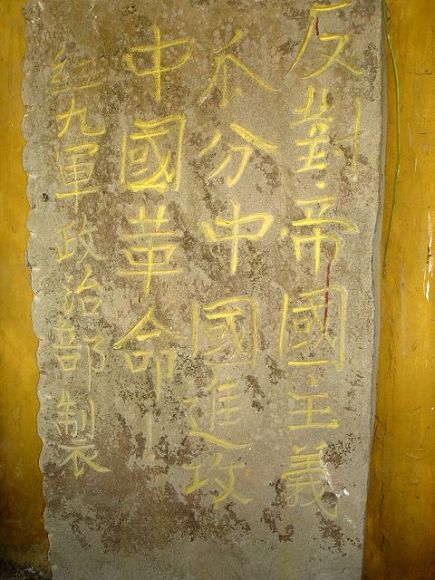 反對帝國主義
瓜分中國進攻
中國革命！
紅九軍政治部製